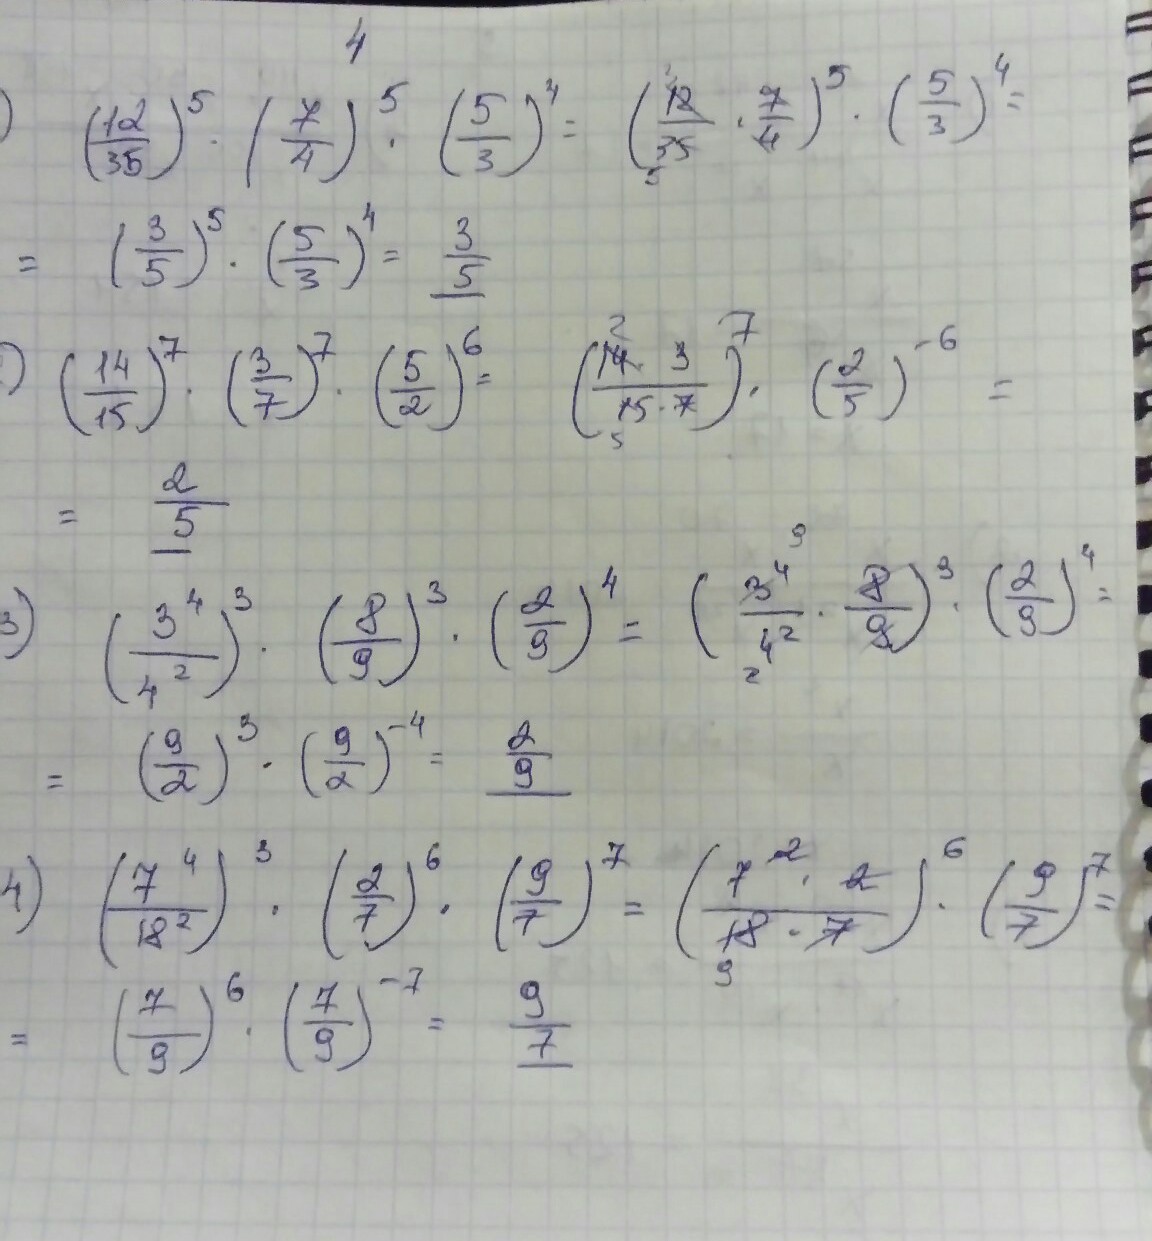 4
) (12/35)^5 · (7/4)^5 · (5/3)^4 = (12/35 · 7/4)^5 · (5/3)^4 =
= (3/5)^5 · (5/3)^4 = 3/5
) (14/15)^7 · (3/7)^7 · (5/2)^6 = (14 · 3/15 · 7)^7 · (2/5)^-6 =
= 2/5
3) (3^4/4^2)^3 · (8/9)^3 · (2/9)^4 = (3^4/4^2 · 8/9)^3 · (2/9)^4 =
= (9/2)^3 · (9/2)^-4 = 2/9
4) (7^4/18^2)^3 · (2/7)^6 · (9/7)^7 = (7^2 · 2/18 · 7)^6 · (9/7)^7 =
= (7/9)^6 · (7/9)^-7 = 9/7